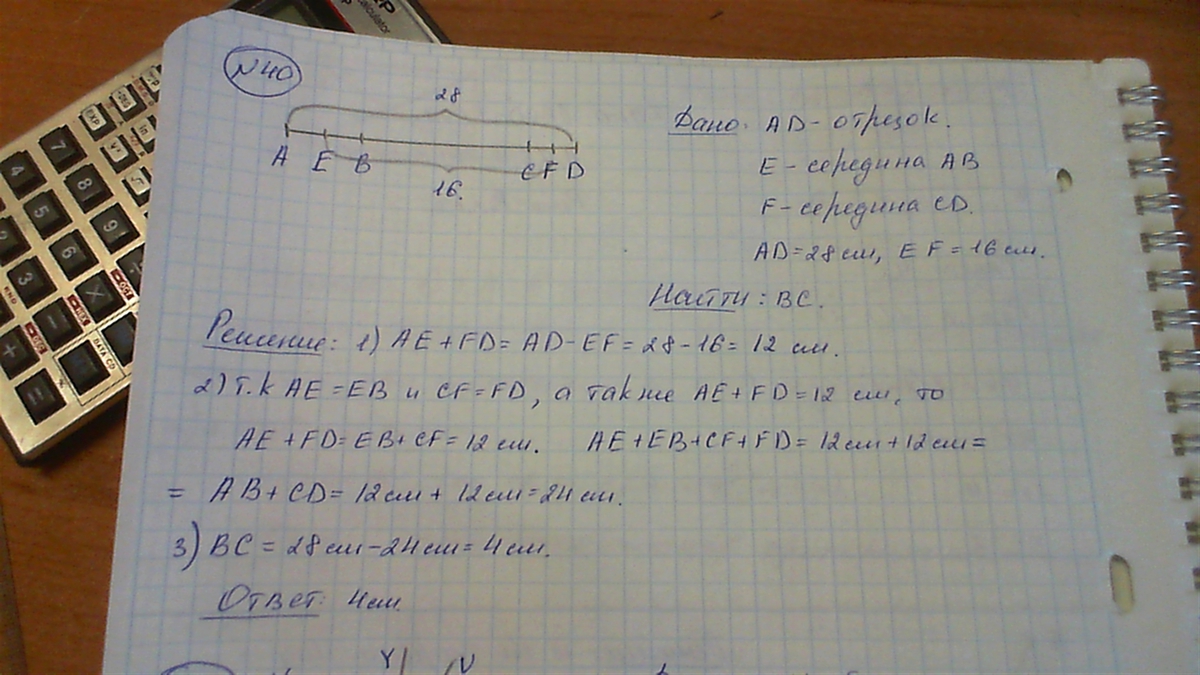 N40
28
A E B C F D
16.
Дано: AD - отрезок.
E - середина AB
F - середина CD.
AD = 28 см, EF = 16 см.
Найти: BC.
Решение: 1) AE + FD = AD - EF = 28 - 16 = 12 см.
2) Т.к AE = EB и CF = FD, а также AE + FD = 12 см, то
AE + FD = EB + CF = 12 см. AE + EB + CF + FD = 12 см + 12 см =
= AB + CD = 12 см + 12 см = 24 см.
3) BC = 28 см - 24 см = 4 см.
Ответ: 4 см.
Y V
7
4
8
5
9
6
3
EXP
DATA CD
+
=